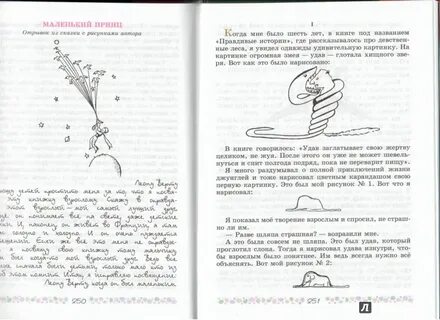 МАЛЕНЬКИЙ ПРИНЦ
Отрывок из сказки с рисунками автора
Леону Верту
Прошу детей простить меня за то, что я посвя-
тил эту книжку взрослому. Скажу в оправда-
ние: этот взрослый — мой самый лучший друг.
И еще: он понимает все на свете, даже детские
книги. И, наконец, он живет во Франции, а там
сейчас голодно и холодно. И он очень нуждается
в утешении. Если же все это меня не оправды-
вает, я посвящу эту книжку тому мальчику,
каким был когда-то мой взрослый друг. Ведь все
взрослые сначала были детьми, только мало кто из
них об этом помнит. Итак, я исправляю посвящение:
Леону Верту, когда он был маленьким
250
I
Когда мне было шесть лет, в книге под названием
«Правдивые истории», где рассказывалось про девствен-
ные леса, я увидел однажды удивительную картинку. На
картинке огромная змея — удав — глотала хищного зве-
ря. Вот как это было нарисовано:
В книге говорилось: «Удав заглатывает свою жертву
целиком, не жуя. После этого он уже не может шевель-
нуться и спит полгода подряд, пока не переварит пищу».
Я много раздумывал о полной приключений жизни
джунглей и тоже нарисовал цветным карандашом свою
первую картинку. Это был мой рисунок № 1. Вот что я
нарисовал:
Я показал моё творение взрослым и спросил, не страш-
но ли им.
— Разве шляпа страшная? — возразили мне.
А это была совсем не шляпа. Это был удав, который
проглотил слона. Тогда я нарисовал удава изнутри, что-
бы взрослым было понятнее. Им ведь всегда нужно всё
объяснять. Вот мой рисунок № 2:
251
Л